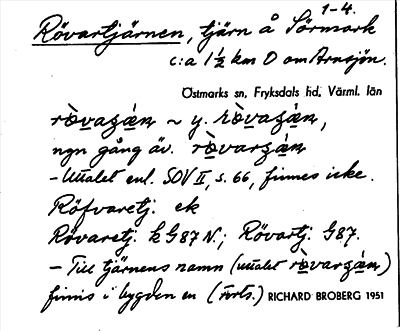 1-4.
Rövartjärnen, tjärn å Sörmark
c:a 1½ km O om Arnsjön.
Östmarks sn, Fryksdals hd, Värml. län
rò̱vaʒä́n ~ y. rò̱vaʒä́n,
ngn gång äv. rò̱varʒä́n
- Uttalet enl. SOV II, s. 66, finnes icke.
Röfvaretj. ek
Rövaretj. k G87 N.; Rövartj. G87.
- Till tjärnens namn (uttalet rò̱varʒä́n)
finns i bygden en (Forts.) RICHARD BROBERG 1951